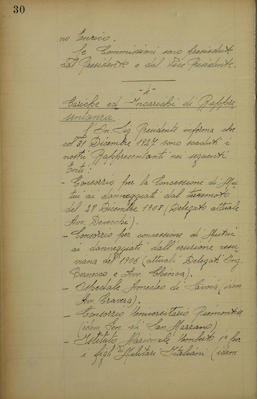 30
no Enrico.
Le Commissioni sono presiedute
dal Presidente o dal Vice Presidente.
Cariche ed Incarichi di Rappre
sentanza
L'On. Sig. Presidente informa che
col 31 Dicembre 1927 sono scaduti i
nostri Rappresentanti nei seguenti
Enti:
- Consorzio per la Concessione di Mu
tui ai danneggiati dal terremoto
del 28 Dicembre 1908 (Delegato attuale
Avv.
- Consorzio per concessione di Mutui
ai danneggiati dall'eruzione vesu
viana del 1906 (attuali Delegati Ing.
e Avv.
- Ospedale Amedeo di Savoia, (
Avv.
- Consorzio Universitario Piemontese
(idem Con. di San Marzano)
- Istituto Nazionale Umberto I° per
i figli di Militari Italiani (idem